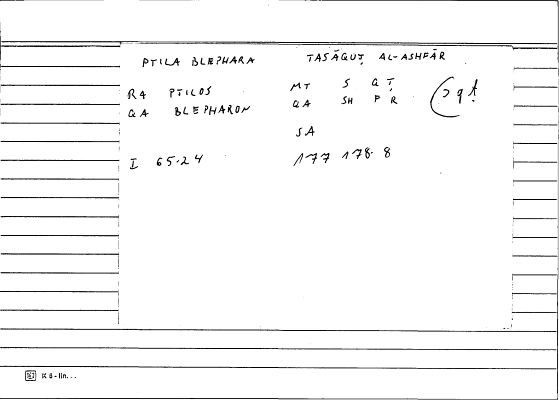 PTILA BLEPHARA TASĀQUṬ AL-ASHFĀR
RA PTILOS MT S QṬ
QA BLEPHARON QA SH F R
SA
I 65.24 177 178.8
K 8 - lin...